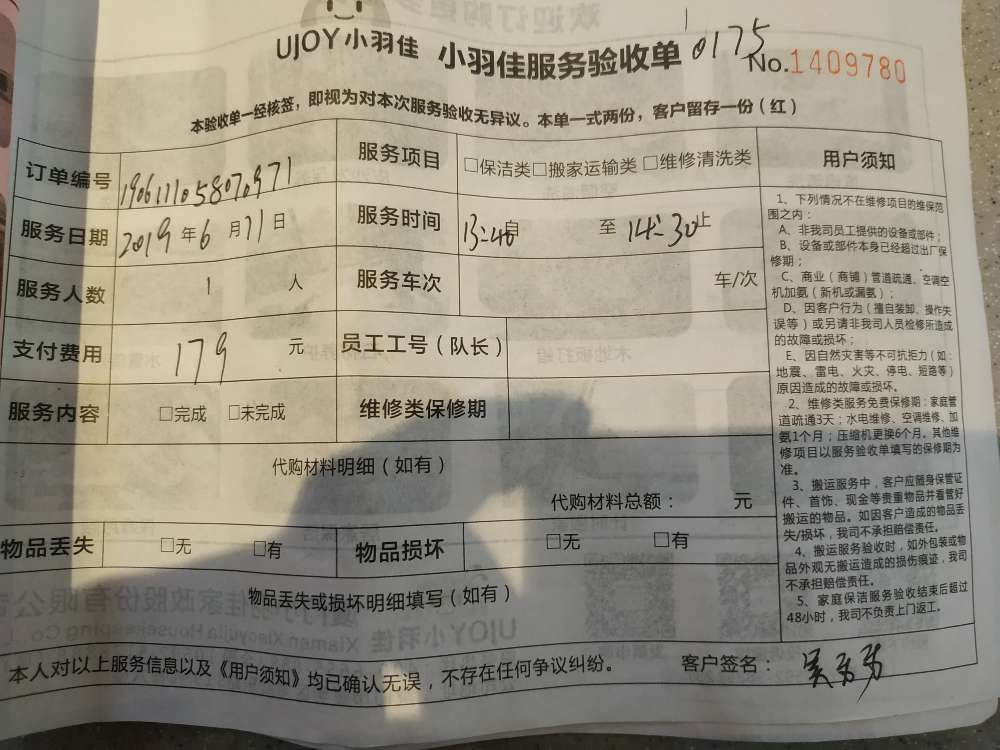 UJOY小羽佳 小羽佳服务验收单 0175
No.1409780
本验收单一经核签，即视为对本次服务验收无异议。本单一式两份，客户留存一份（红）
订单编号 1906111058070971 服务项目 □保洁类□搬家运输类□维修清洗类
服务日期 2019年6月11日 服务时间 13:40自 至 14:30止
服务人数 1 人 服务车次 车/次
支付费用 179 元 员工工号（队长）
服务内容 □完成 □未完成 维修类保修期
代购材料明细（如有）
代购材料总额： 元
物品丢失 □无 □有 物品损坏 □无 □有
物品丢失或损坏明细填写（如有）
用户须知
1、下列情况不在维修项目的维保范
围之内：
A、非我司员工提供的设备或部件；
B、设备或部件本身已经超过出厂保
修期；
C、商业（商铺）管道疏通、空调空
机加氨（新机或漏氨）；
D、因客户行为（擅自装卸、操作失
误等）或另请非我司人员检修所造成
的故障或损坏；
E、因自然灾害等不可抗拒力（如：
地震、雷电、火灾、停电、短路等）
原因造成的故障或损坏。
2、维修类服务免费保修期：家庭管
道疏通3天；水电维修、空调维修、加
氨1个月；压缩机更换6个月。其他维
修项目以服务验收单填写的保修期为
准。
3、搬运服务中，客户应随身保管证
件、首饰、现金等贵重物品并看管好
搬运的物品。如因客户造成的物品丢
失/损坏，我司不承担赔偿责任。
4、搬运服务验收时，如外包装或物
品外观无搬运造成的损伤痕迹，我司
不承担赔偿责任。
5、家庭保洁服务验收结束后超过
48小时，我司不负责上门返工。
本人对以上服务信息以及《用户须知》均已确认无误，不存在任何争议纠纷。 客户签名：